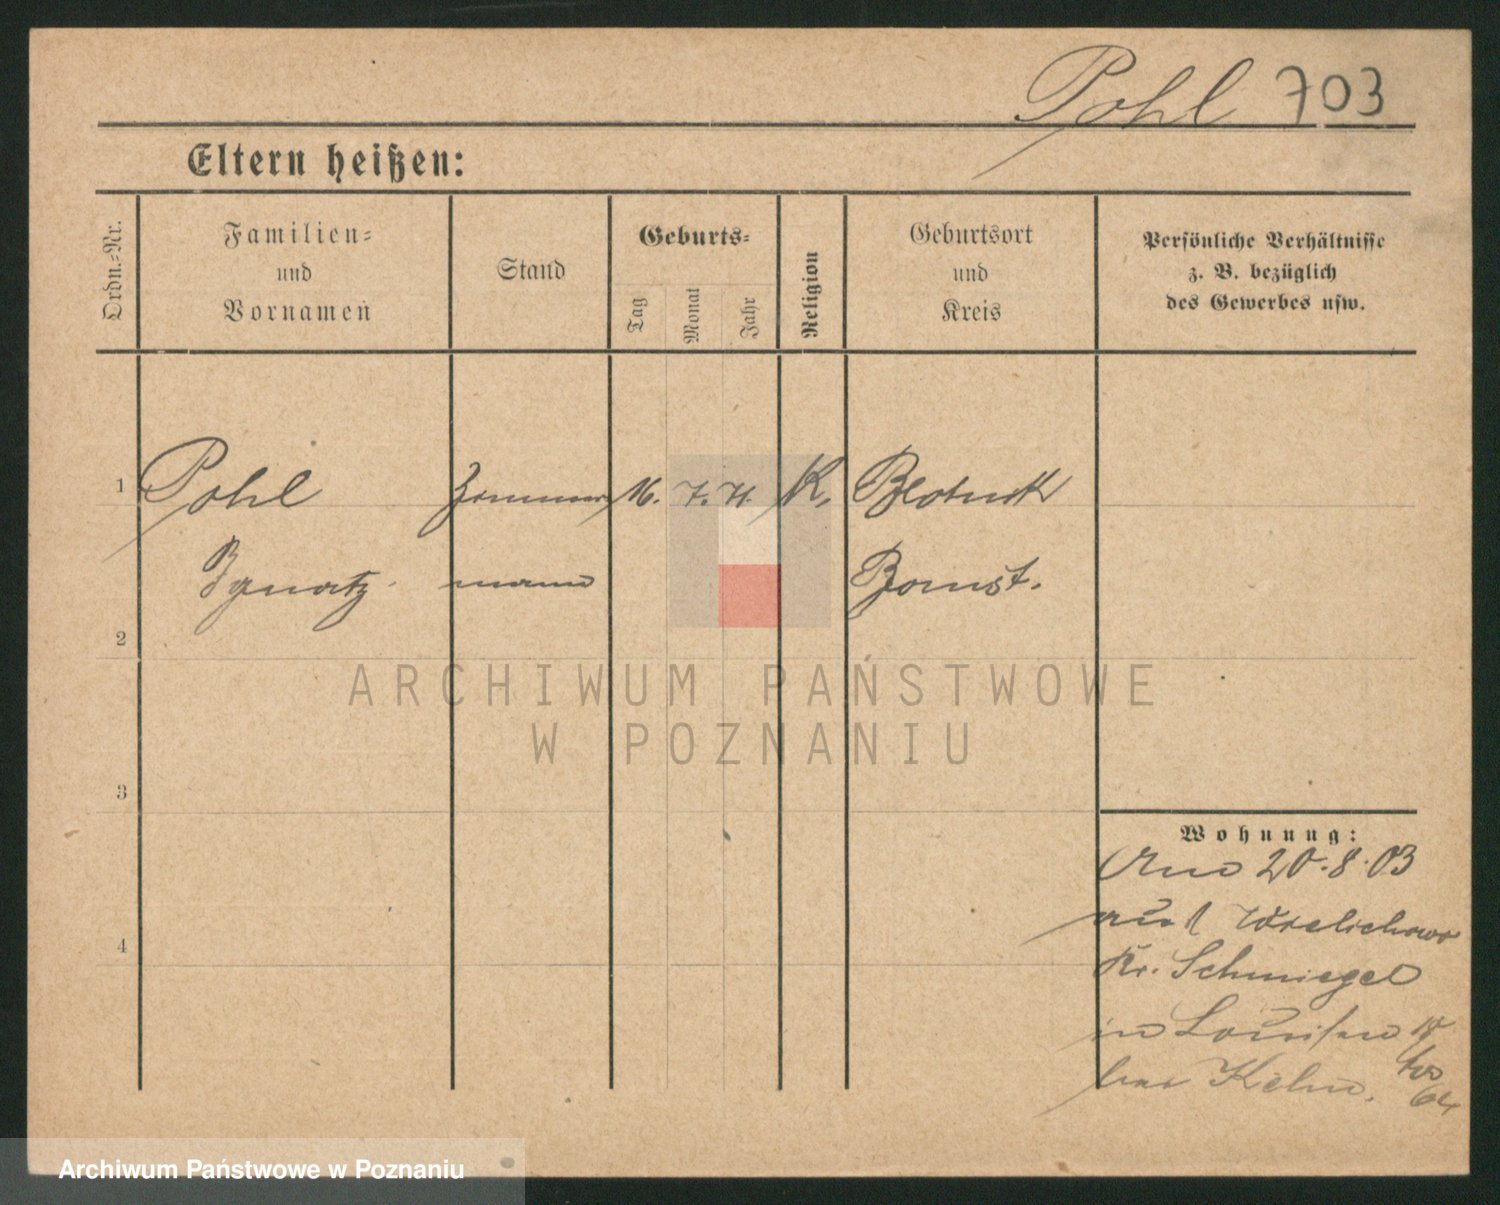 Pohl 703
Eltern heißen:
Ordn.-Nr.
Familien-
und
Vornamen
Stand
Geburts-
Tag
Monat
Jahr
Religion
Geburtsort
und
Kreis
Persönliche Verhältnisse
z. B. bezüglich
des Gewerbes usw.
1 Pohl Zimmer 16. 7. 71. K. Blotnik
Ignatz mann Bomst.
2
3
4
ARCHIWUM PAŃSTWOWE
W POZNANIU
Wohnung:
20.8.03
Wielichowo
Kr. Schmiegel
in Louisen
Archiwum Państwowe w Poznaniu